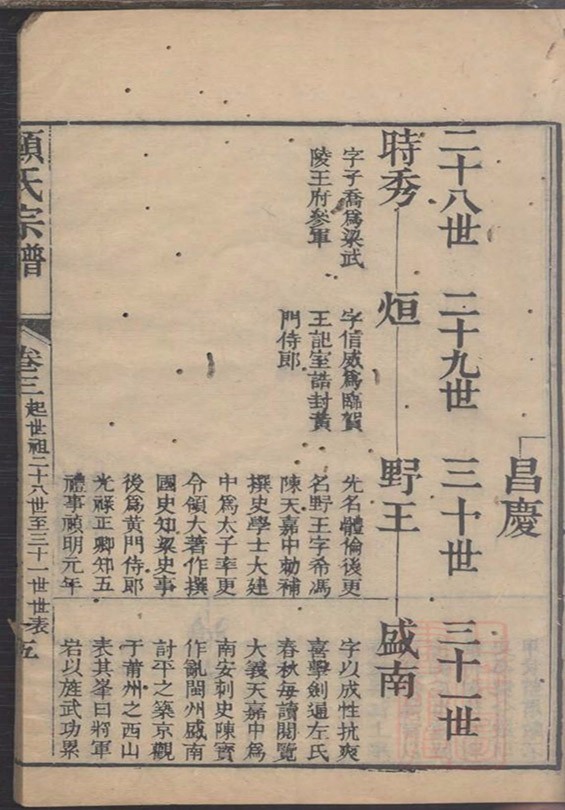 昌慶
二十八世
二十九世
三十世
三十一世
時秀
烜
野王
盛南
字子喬爲梁武
陵王府參軍
字信威爲臨賀
王記室誥封黃
門侍郎
先名體倫後更
名野王字希馮
陳天嘉中勅補
撰史學士大建
中爲太子率更
令領大著作撰
國史知梁史事
後爲黃門侍郎
光祿正卿知五
禮事禎明元年
字以成性抗爽
喜擊劍通左氏
春秋每讀閱覽
大義天嘉中爲
南安刺史陳寶
作亂閩州盛南
討平之築京觀
于莆州之西山
表其峯曰將軍
岩以旌武功累
顧氏宗譜
卷三
起世祖二十八世至三十一世世表
五